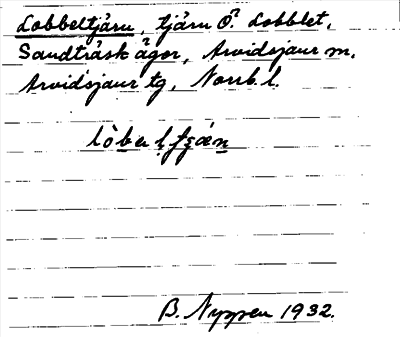 Lobbeltjärn, tjärn Ö Lobblet,
Sandträsk ägor, Arvidsjaur sn.
Arvidsjaur tg, Norrb. l.
B. Nyppen 1932.